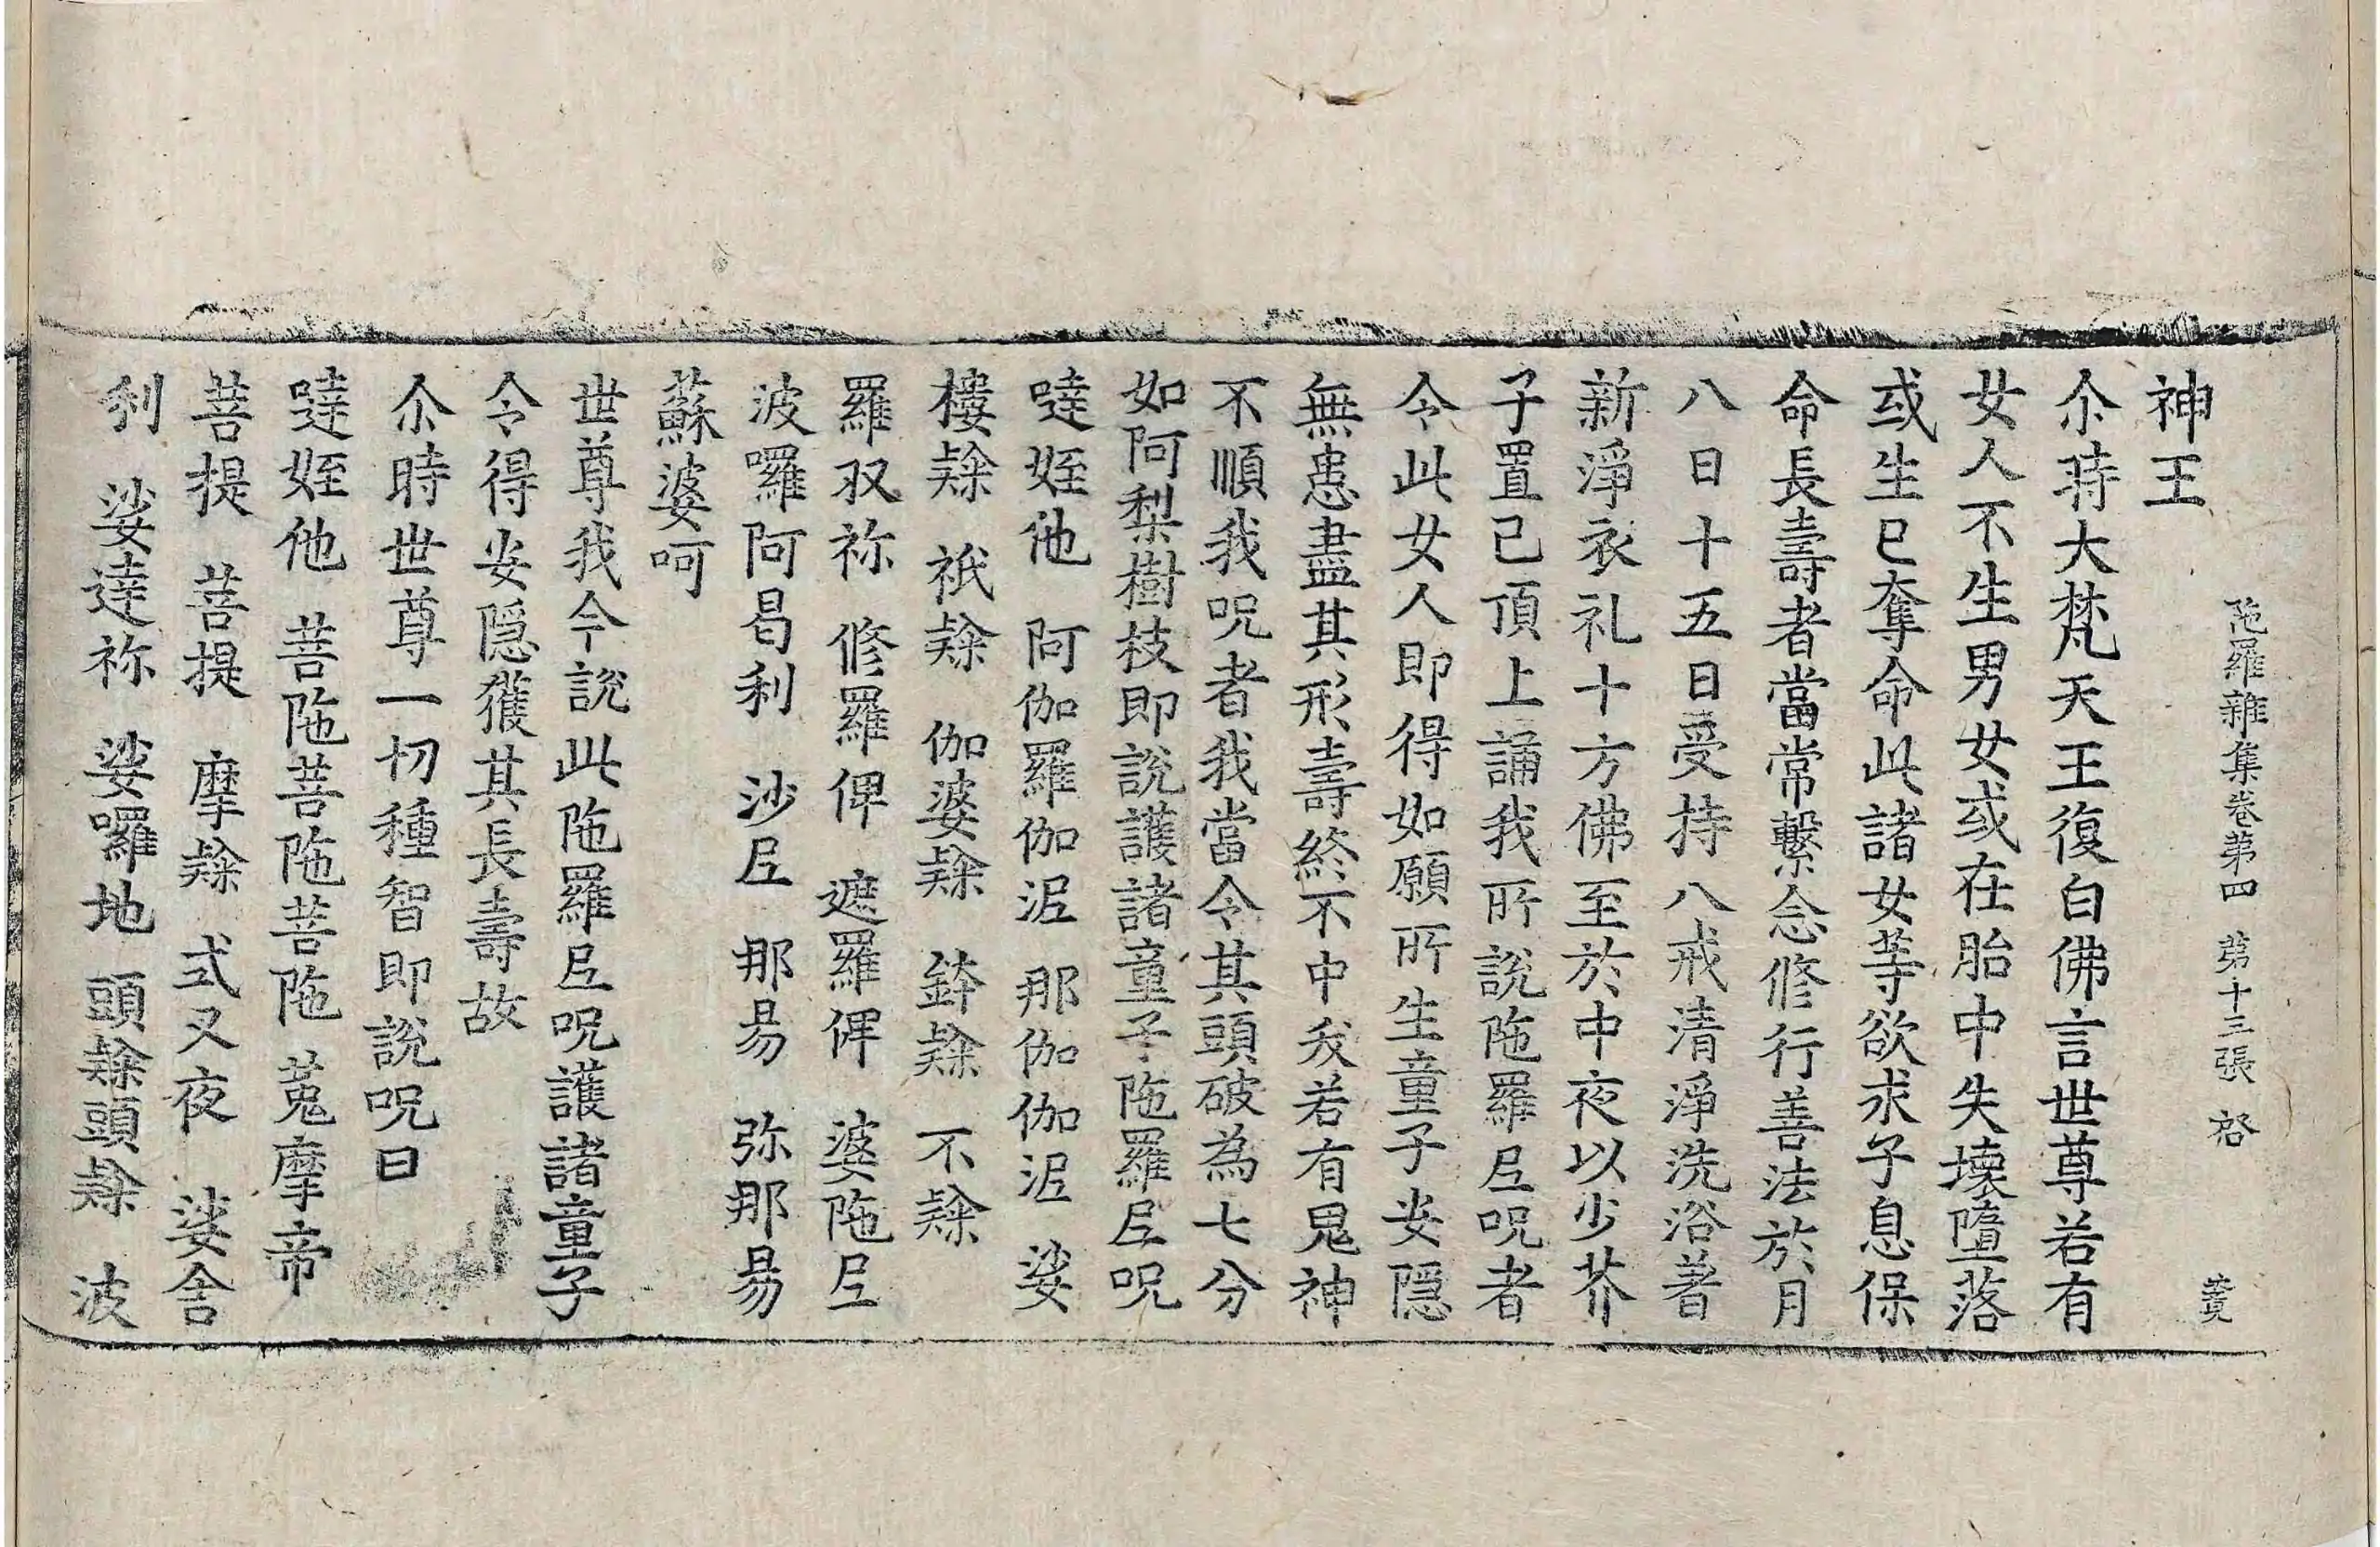 陁羅雜集卷第四 第十三張 啓
神王
尒時大梵天王復白佛言世尊若有
女人不生男女或在胎中失壞墮落
或生已奪命此諸女等欲求子息保
命長壽者當常繫念修行善法於月
八日十五日受持八戒清淨洗浴著
新淨衣礼十方佛至於中夜以少芥
子置已頂上誦我所說陁羅𡰱呪者
令此女人即得如願所生童子安隱
無患盡其形壽終不中夭若有鬼神
不順我呪者我當令其頭破為七分
如阿梨樹枝即說護諸童子陁羅𡰱呪
噠姪他 阿伽羅伽泥 那伽伽泥 娑
樓隸 祇隸 伽婆隸 鉢隸 不隸
羅収祢 修羅俾 遮羅俾 婆陁𡰱
波囉阿曷利 沙𡰱 那易 弥那易
蘇婆呵
世尊我今說此陁羅𡰱呪護諸童子
令得安隱獲其長壽故
尒時世尊一切種智即說呪曰
噠姪他 菩陁菩陁菩陁 菟摩帝
菩提 菩提 摩隸 式叉夜 娑舍
利 娑達祢 娑囉地 頭隸頭隸 波